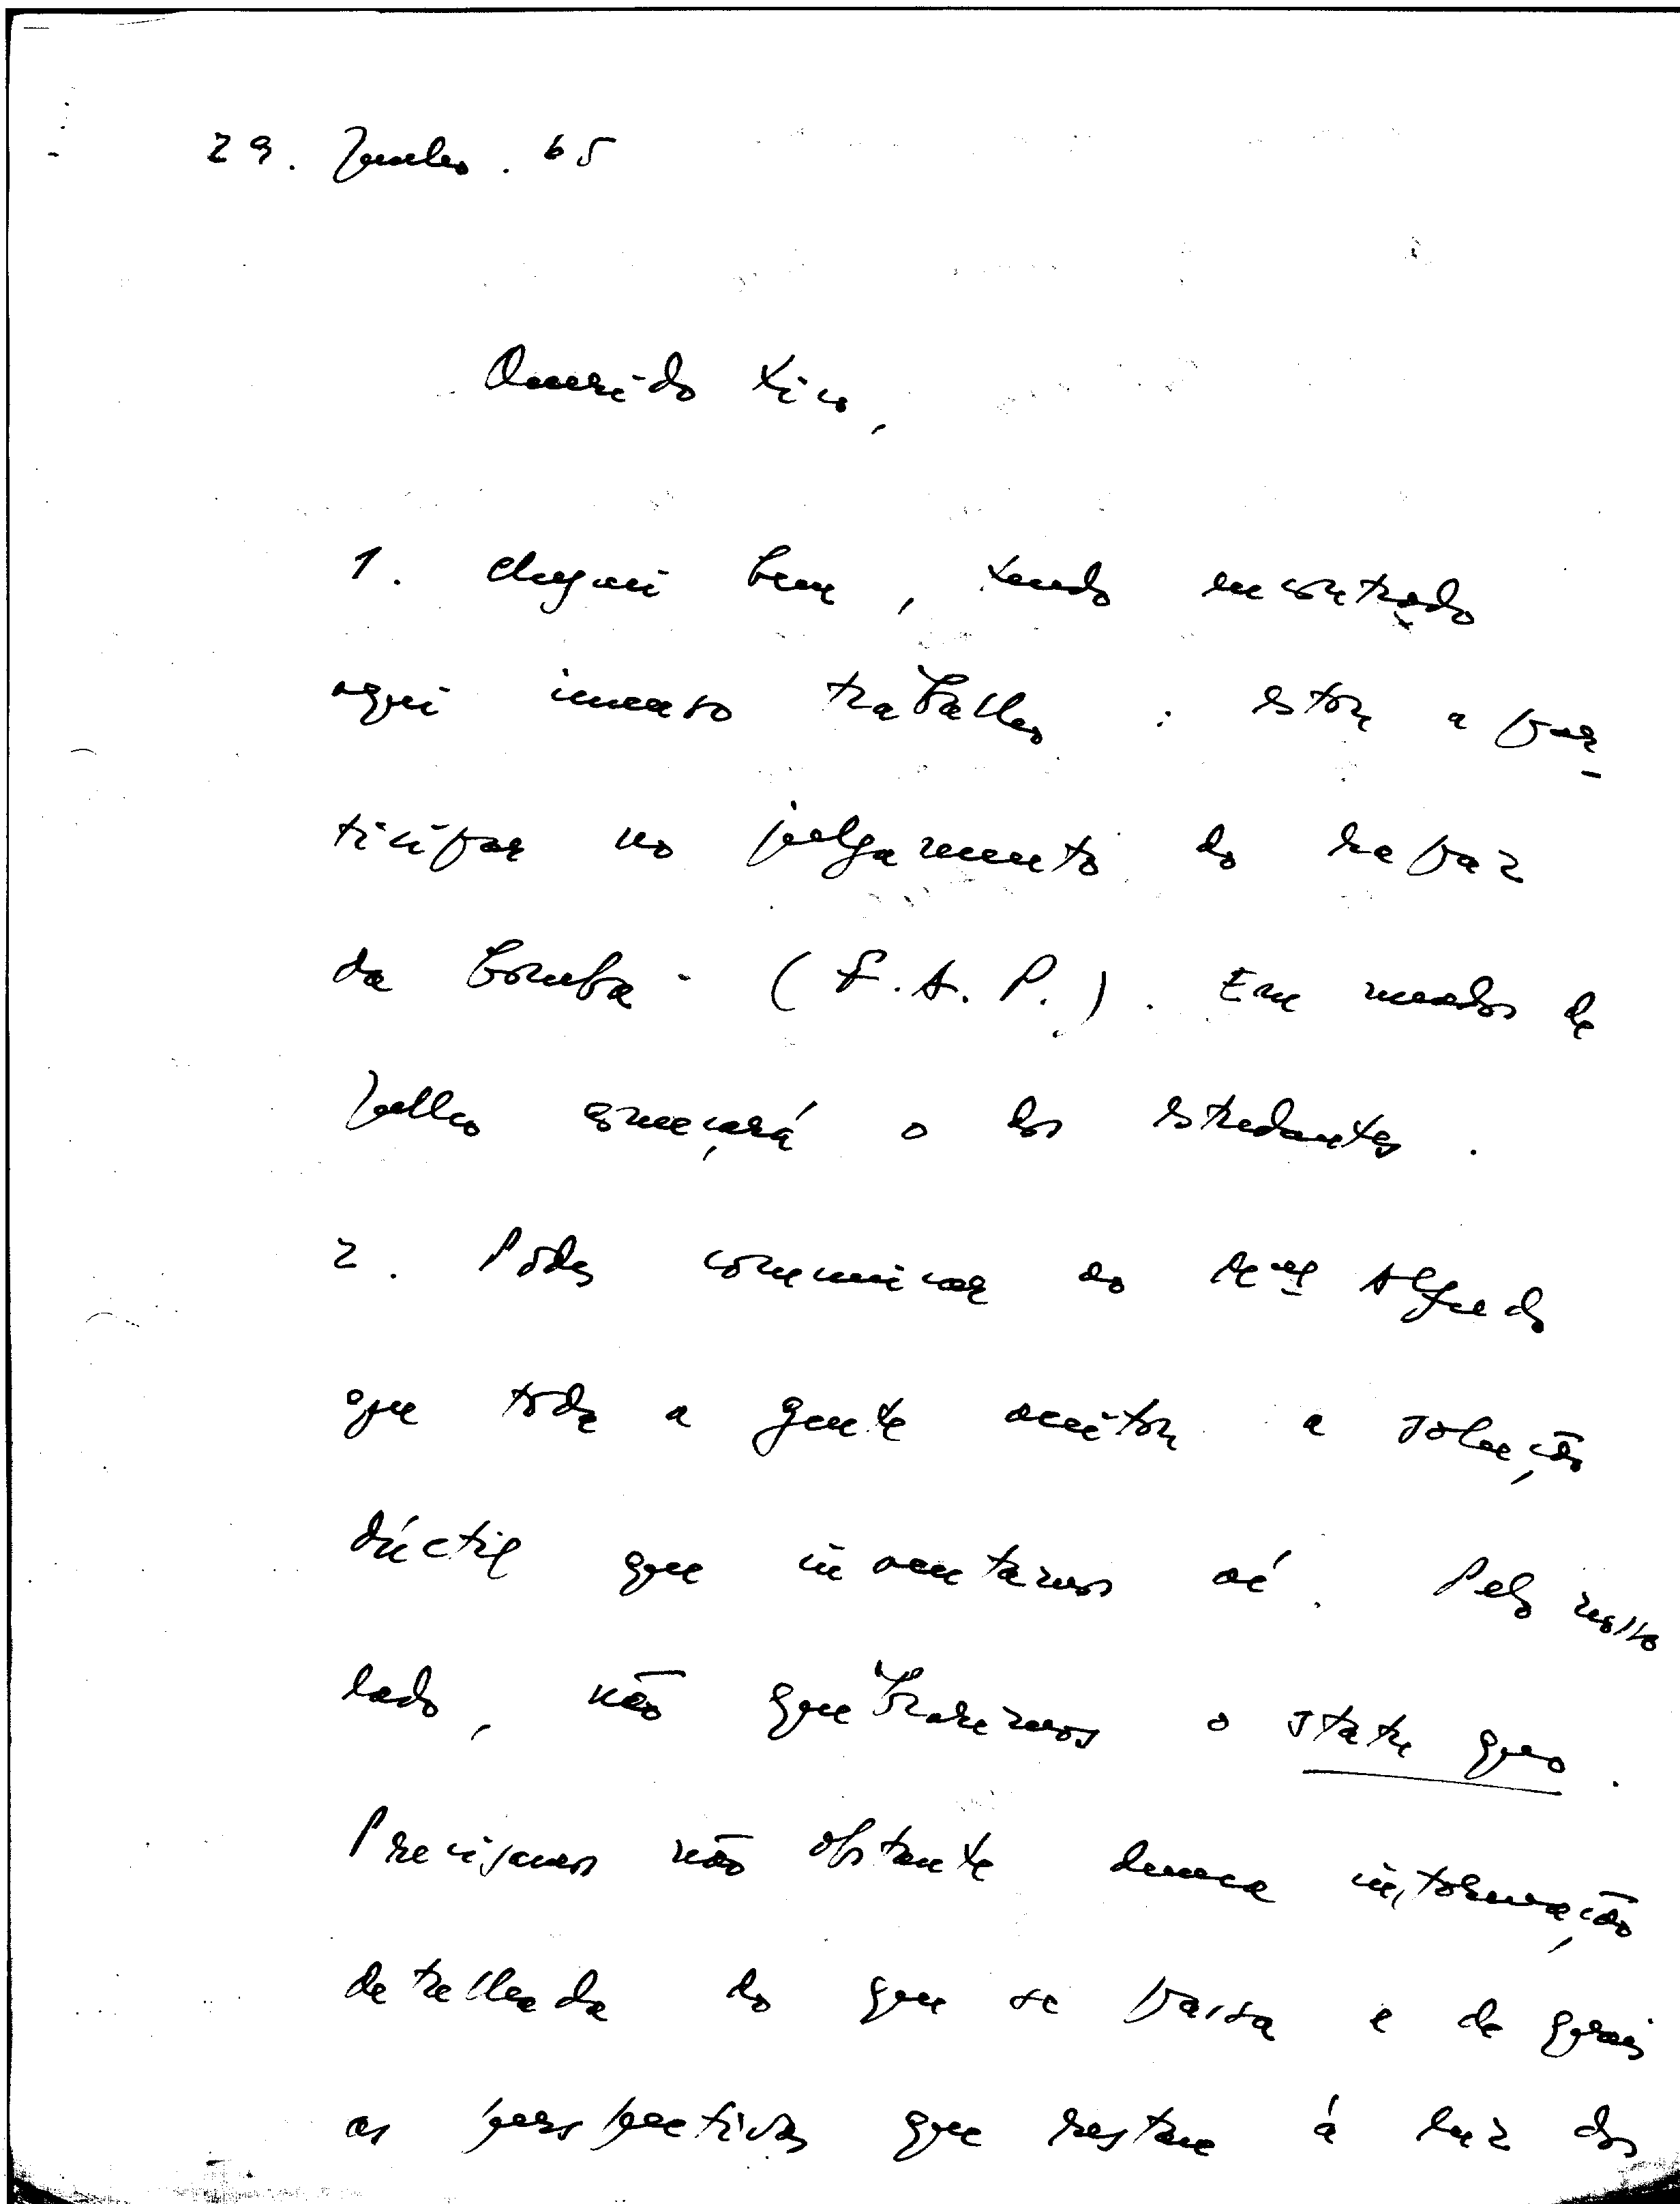 29. Junho. 65
Querido Tico,
1. Cheguei bem, tendo encontrado
aqui imenso trabalho: estou a par-
ticipar no julgamento do rapaz
da bomba (F.A.P.). Em meados de
Julho começará o dos estudantes.
2. Podes comunicar ao Alfredo
que toda a gente aceitou a solução
dúctil que inventámos aí. Pelo nosso
lado, não quebraremos o statu quo.
Precisamos não obstante duma informação
detalhada do que se passa e de quais
as perspectivas que restam à luz dos